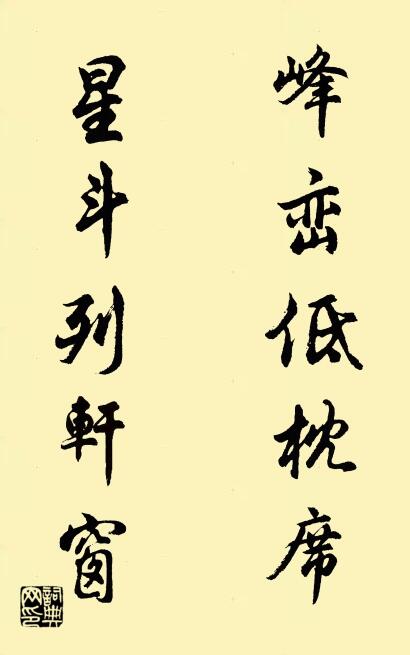 峰峦低枕席
星斗列軒窗
詞典
网印